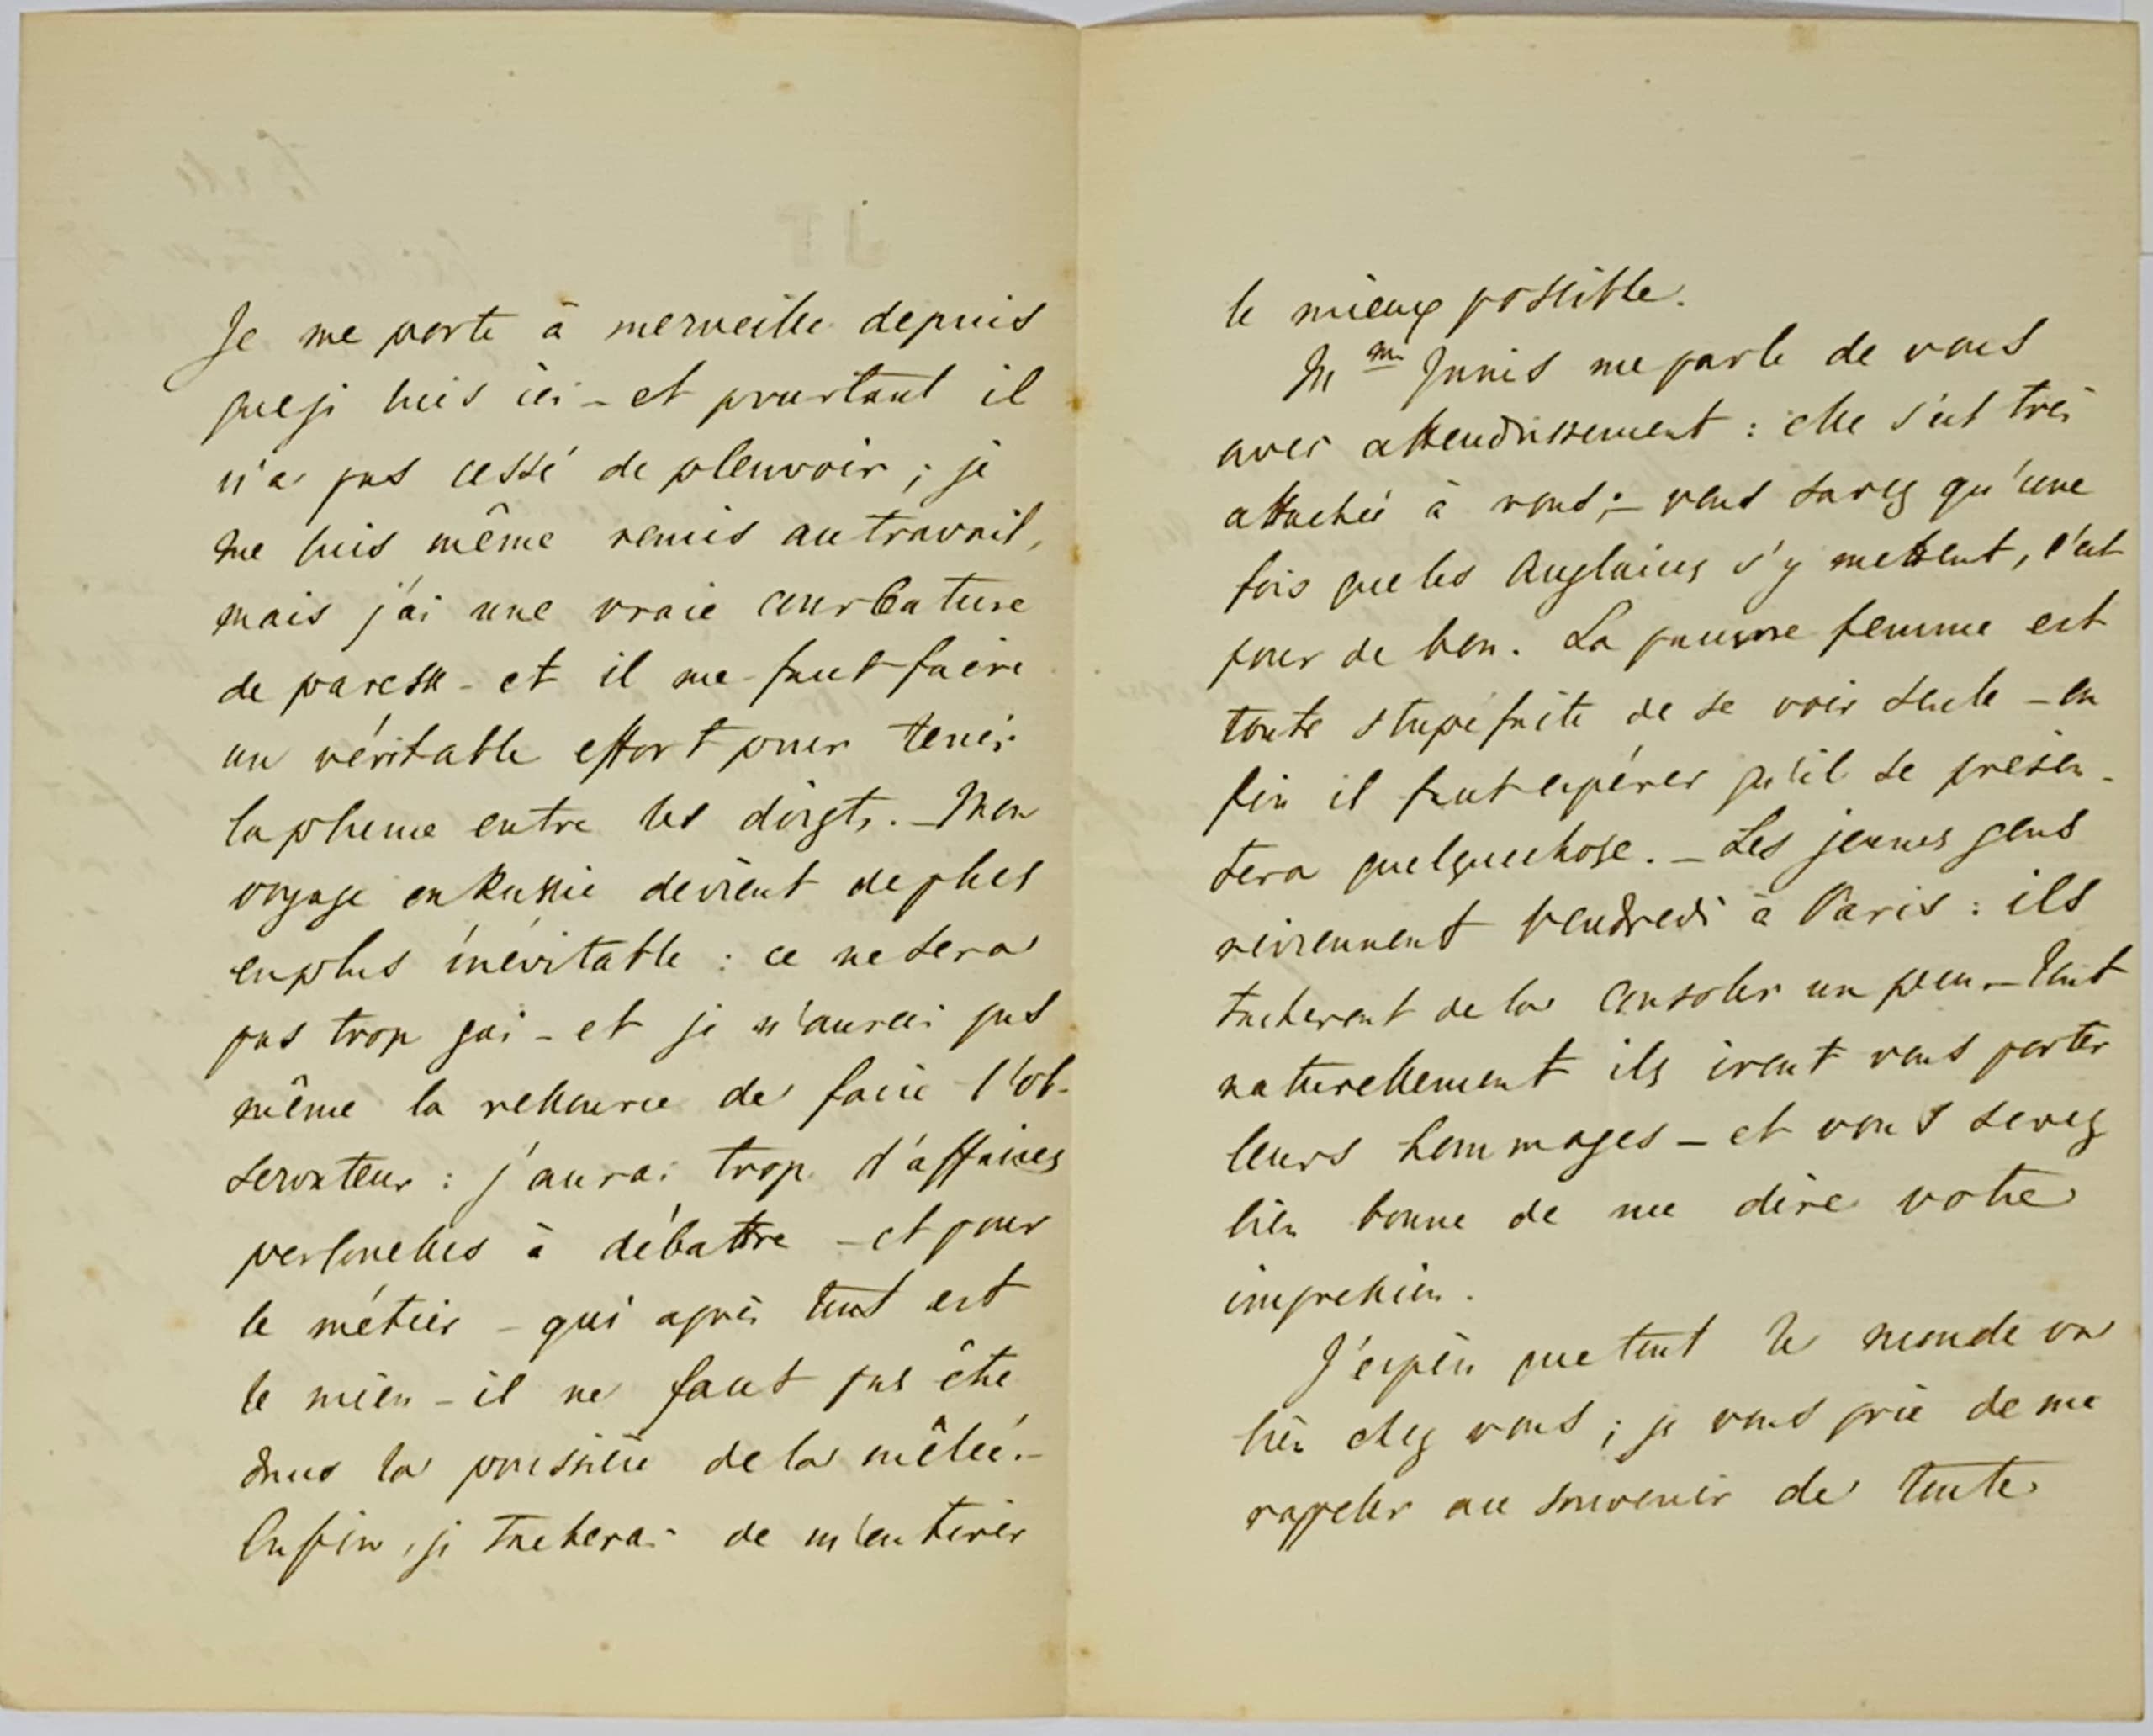 Je me porte à merveille depuis
que je suis ici – et pourtant il
n'a pas cessé de pleuvoir ; je
me suis même remis au travail,
mais j'ai une vraie courbature
de paresse – et il me faut faire
un véritable effort pour tenir
la plume entre les doigts. – Mon
voyage en Russie devient de plus
en plus inévitable : ce ne sera
pas trop gai – et je n'aurai pas
même la ressource de faire l'ob-
servateur : j'aurai trop d'affaires
personelles à débattre – et pour
le métier – qui après tout est
le mien – il ne faut pas être
dans la poussière de la mêlée. –
Enfin, je tacherai de m'en tirer
le mieux possible.
Mme Innis me parle de vous
avec attendrissement : elle s'est très
attachée à vous ; – vous savez qu'une
fois que les Anglaises s'y mettent, c'est
pour de bon. La pauvre femme est
toute stupéfaite de se voir seule – en
fin il faut espérer qu'il se présen-
tera quelquechose. – Les jeunes gens
reviennent Vendredi à Paris : ils
tacheront de la consoler un peu. – Tout
naturellement ils iront vous porter
leurs hommages – et vous serez
bien bonne de me dire votre
impression.
J'espère que tout le monde va
bien chez vous ; je vous prie de me
rappeler au souvenir de toute
JT